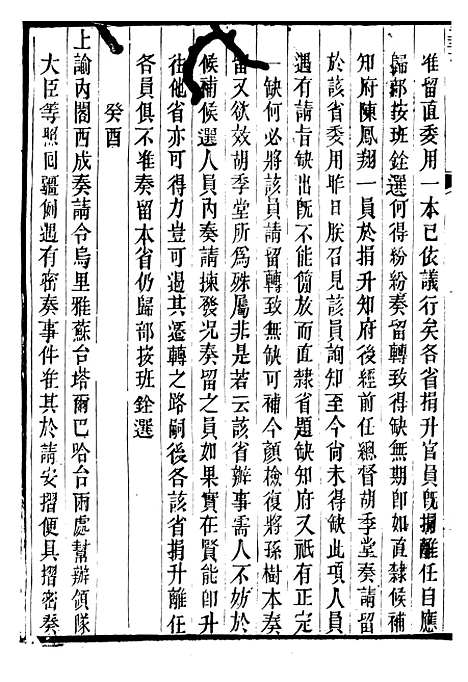 准留直委用一本已依議行矣各省捐升官員旣捐離任自應
歸部按班銓選何得紛紛奏留轉致得缺無期卽如直隸候補
知府陳鳳翔一員於捐升知府後經前任總督胡季堂奏請留
於該省委用昨日朕召見該員詢知至今尙未得缺此項人員
遇有請旨缺出旣不能簡放而直隸省題缺知府又祇有正定
一缺何必將該員請留轉致無缺可補今顏檢復將孫樹本奏
留又欲效胡季堂所爲殊屬非是若云該省辦事需人不妨於
候補候選人員內奏請揀發況奏留之員如果實在賢能卽升
往他省亦可得力豈可遏其遷轉之路嗣後各該省捐升離任
各員俱不准奏留本省仍歸部按班銓選
癸酉
上諭內閣西成奏請令烏里雅蘇台塔爾巴哈台兩處幫辦領隊
大臣等照回疆例遇有密奏事件准其於請安摺便具摺密奏